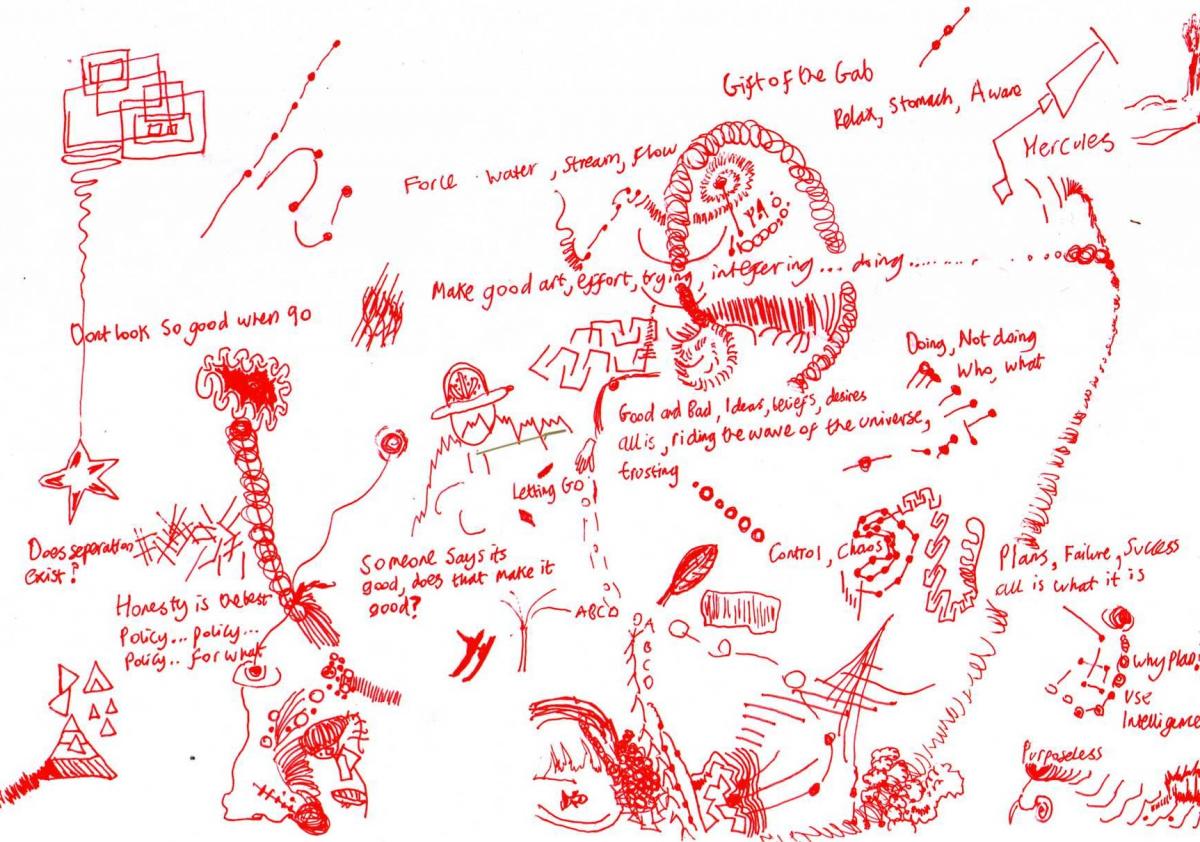 Gift of the Gab
Relax, Stomach, Aware
Hercules
Force Water, Stream, Flow
Make good art, effort, trying, intefering... doing..........
Dont look so good when 90
Doing, Not doing
Who, what
Good and Bad, Ideas, beliefs, desires
all is, riding the wave of the universe,
trusting
Letting GO
Does seperation
exist?
Someone says its
good, does that make it
good?
Control, Chaos
Plans, Failure, Success
all is what it is
Honesty is the best
Policy... policy...
Policy.. for what
ABCD
A
B
C
D
Why plan?
use
Intelligence
Purposeless